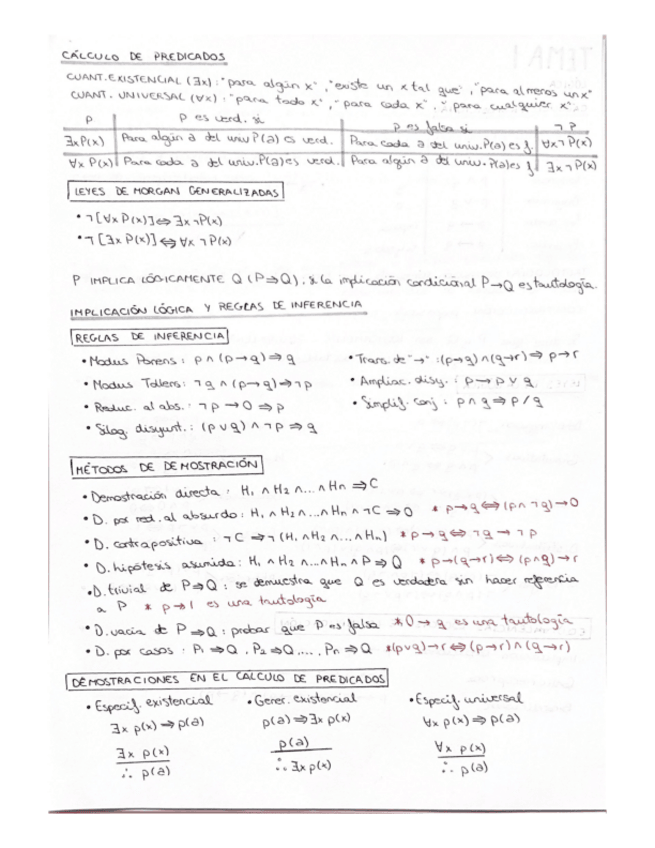 CÁLCULO DE PREDICADOS
CUANT. EXISTENCIAL (∃x): "para algún x", "existe un x tal que", "para al menos un x"
CUANT. UNIVERSAL (∀x): "para todo x", "para cada x", "para cualquier x"
P | P es verd. si | P es falsa si | ¬P
∃x P(x) | Para algún a del univ P(a) es verd. | Para cada a del univ. P(a) es f. | ∀x ¬P(x)
∀x P(x) | Para cada a del univ. P(a) es verd. | Para algún a del univ. P(a) es f | ∃x ¬P(x)
LEYES DE MORGAN GENERALIZADAS
• ¬[∀x P(x)] ⇔ ∃x ¬P(x)
• ¬[∃x P(x)] ⇔ ∀x ¬P(x)
P IMPLICA LÓGICAMENTE Q (P⇒Q), si la implicación condicional P→Q es tautología.
IMPLICACIÓN LÓGICA Y REGLAS DE INFERENCIA
REGLAS DE INFERENCIA
• Modus Ponens: p ∧ (p→q) ⇒ q
• Trans. de "→": (p→q) ∧ (q→r) ⇒ p→r
• Modus Tollens: ¬q ∧ (p→q) ⇒ ¬p
• Ampliac. disy.: p → p ∨ q
• Reduc. al abs.: ¬p → 0 ⇒ p
• Simplif. conj: p ∧ q ⇒ p / q
• Silog. disyunt.: (p ∨ q) ∧ ¬p ⇒ q
MÉTODOS DE DEMOSTRACIÓN
• Demostración directa: H₁ ∧ H₂ ∧ ... ∧ Hn ⇒ C
• D. por red. al absurdo: H₁ ∧ H₂ ∧ ... ∧ Hn ∧ ¬C ⇒ 0 * p→q ⇔ (p ∧ ¬q) → 0
• D. contrapositiva: ¬C ⇒ ¬(H₁ ∧ H₂ ∧ ... ∧ Hn) * p→q ⇔ ¬q → ¬p
• D. hipótesis asumida: H₁ ∧ H₂ ∧ ... ∧ Hn ∧ P ⇒ Q * p→(q→r) ⇔ (p∧q)→r
• D. trivial de P⇒Q: se demuestra que Q es verdadera sin hacer referencia
a P * p→1 es una tautología
• D. vacía de P⇒Q: probar que P es falsa * 0→q es una tautología
• D. por casos: P₁ ⇒ Q, P₂ ⇒ Q, ..., Pn ⇒ Q *(p∨q)→r ⇔ (p→r) ∧ (q→r)
DEMOSTRACIONES EN EL CÁLCULO DE PREDICADOS
• Especif. existencial • Gener. existencial • Especif. universal
∃x p(x) ⇒ p(a) p(a) ⇒ ∃x p(x) ∀x p(x) ⇒ p(a)
∃x p(x) p(a) ∀x p(x)
∴ p(a) ∴ ∃x p(x) ∴ p(a)